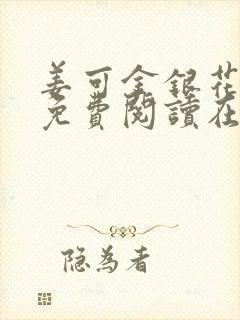 姜可金銀花
免費閱讀在
隐為者